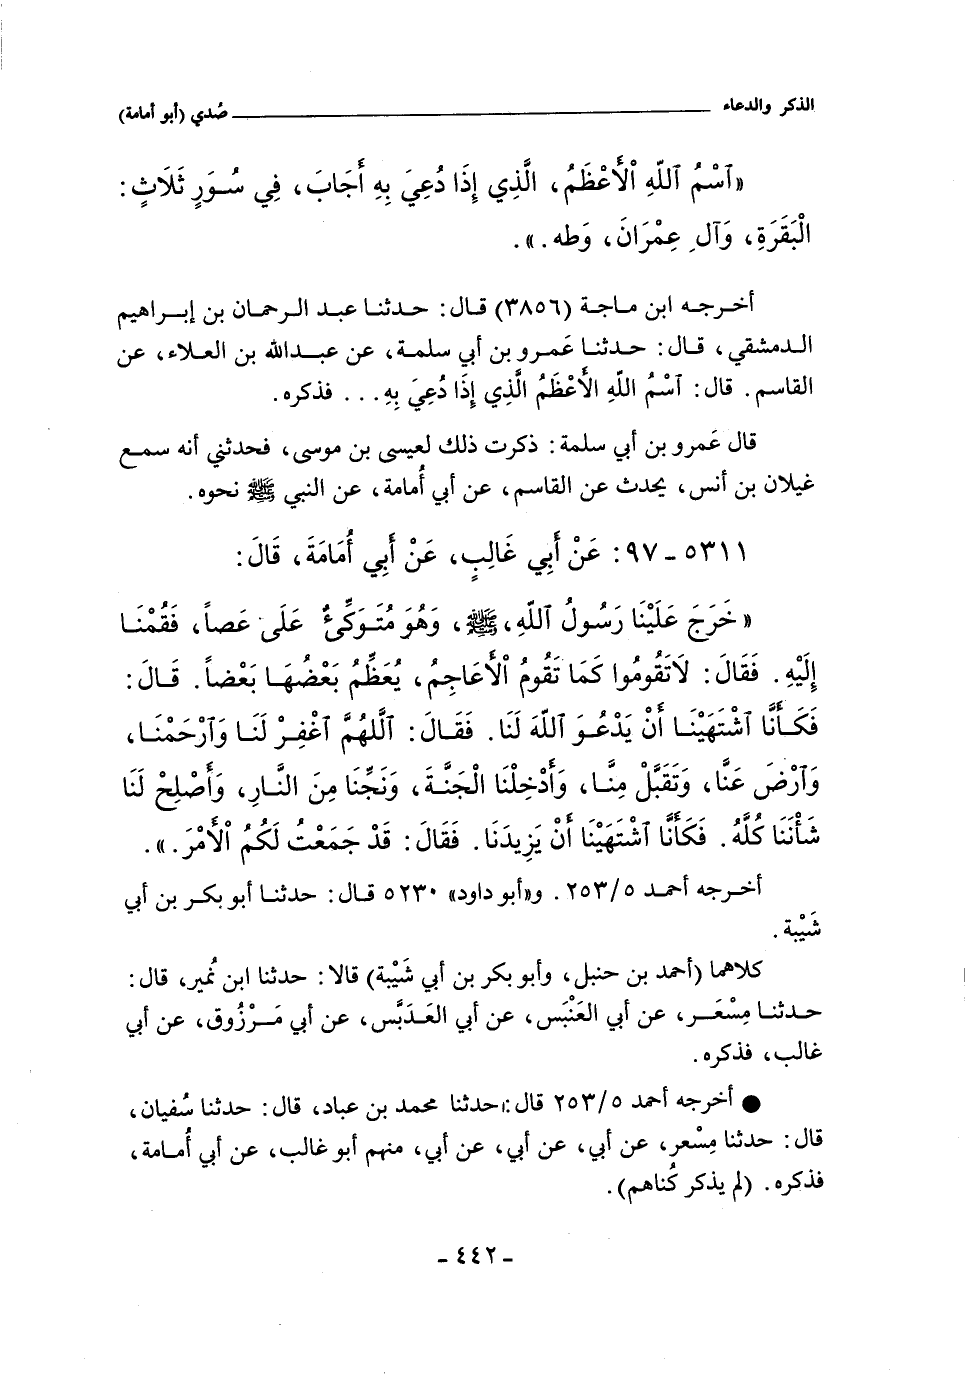 الذكر والدعاء ــــــــــــــــ صُدي (أبو أمامة)
«ٱسْمُ ٱللّهِ ٱلْأَعْظَمُ، الَّذِي إِذَا دُعِيَ بِهِ أَجَابَ، فِي سُوَرٍ ثَلَاثٍ:
الْبَقَرَةِ، وَآلِ عِمْرَانَ، وَطه.».
أخرجه ابن ماجة (٣٨٥٦) قال: حدثنا عبد الرحمان بن إبراهيم
الدمشقي، قال: حدثنا عَمرو بن أبي سلمة، عن عبدالله بن العلاء، عن
القاسم. قال: ٱسْمُ اللّهِ الأَعْظَمُ الَّذِي إِذَا دُعِيَ بِهِ... فذكره.
قال عَمرو بن أبي سلمة: ذكرت ذلك لعيسى بن موسى، فحدثني أنه سمع
غيلان بن أنس، يحدث عن القاسم، عن أبي أُمامة، عن النبي ﷺ نحوه.
٥٣١١ - ٩٧: عَنْ أَبِي غَالِبٍ، عَنْ أَبِي أُمَامَةَ، قَالَ:
«خَرَجَ عَلَيْنَا رَسُولُ ٱللّهِ، ﷺ، وَهُوَ مُتَوَكِّئٌ عَلَى عَصاً، فَقُمْنَا
إِلَيْهِ. فَقَالَ: لَاتَقُومُوا كَمَا تَقُومُ ٱلْأَعَاجِمُ، يُعَظِّمُ بَعْضُهَا بَعْضاً. قَالَ:
فَكَأَنَّا ٱشْتَهَيْنَا أَنْ يَدْعُوَ ٱللّهَ لَنَا. فَقَالَ: ٱللَّهُمَّ ٱغْفِرْ لَنَا وَٱرْحَمْنَا،
وَٱرْضَ عَنَّا، وَتَقَبَّلْ مِنَّا، وَأَدْخِلْنَا الْجَنَّةَ، وَنَجِّنَا مِنَ النَّارِ، وَأَصْلِحْ لَنَا
شَأْنَنَا كُلَّهُ. فَكَأَنَّا ٱشْتَهَيْنَا أَنْ يَزِيدَنَا. فَقَالَ: قَدْ جَمَعْتُ لَكُمُ ٱلْأَمْرَ.».
أخرجه أحمد ٢٥٣/٥. و«أبو داود» ٥٢٣٠ قال: حدثنا أبو بكر بن أبي
شَيْبة.
كلاهما (أحمد بن حنبل، وأبو بكر بن أبي شَيْبة) قالا: حدثنا ابن نُمير، قال:
حدثنا مِسْعَر، عن أبي العَنْبَس، عن أبي العَدَبَّس، عن أبي مَرْزُوق، عن أبي
غالب، فذكره.
● أخرجه أحمد ٢٥٣/٥ قال: حدثنا محمد بن عباد، قال: حدثنا سُفيان،
قال: حدثنا مِسْعر، عن أبي، عن أبي، عن أبي، منهم أبو غالب، عن أبي أُمامة،
فذكره. (لم يذكر كُناهم).
- ٤٤٢ -